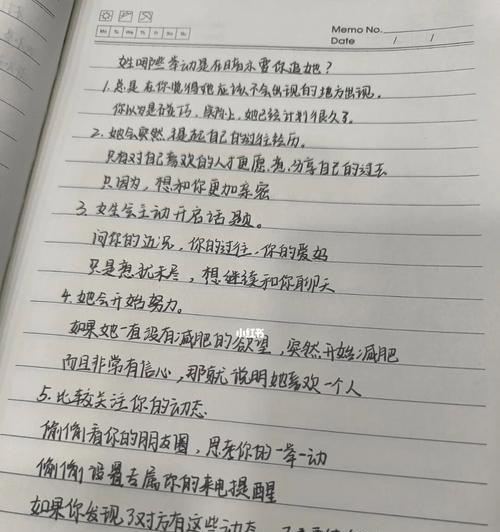 Memo No.
Mo Tu We Th Fr Sa Su
Date / /
她哪些举动是在暗示要你追她?
1.总是在你觉得她应该不会出现的地方出现。
你以为是巧,实际上,她已经计划很久了。
2.她会突然提起自己的过往经历。
只有对自己喜欢的人才更愿意分享自己的过去
只因为,想和你更加亲密
3.女生会主动开启话题。
问你的近况,你的过往,你的爱好
只是意犹未尽,想继续和你聊天
4.她会开始努力。
如果她一直没有减肥的欲望,突然开始减肥
而且非常有信心,那就说明她喜欢一个人
5.比较关注你的动态
偷偷看你的朋友圈,思考你的一举一动
偷偷设置专属你的来电提醒
如果你发现了对方有这些动态
小红书